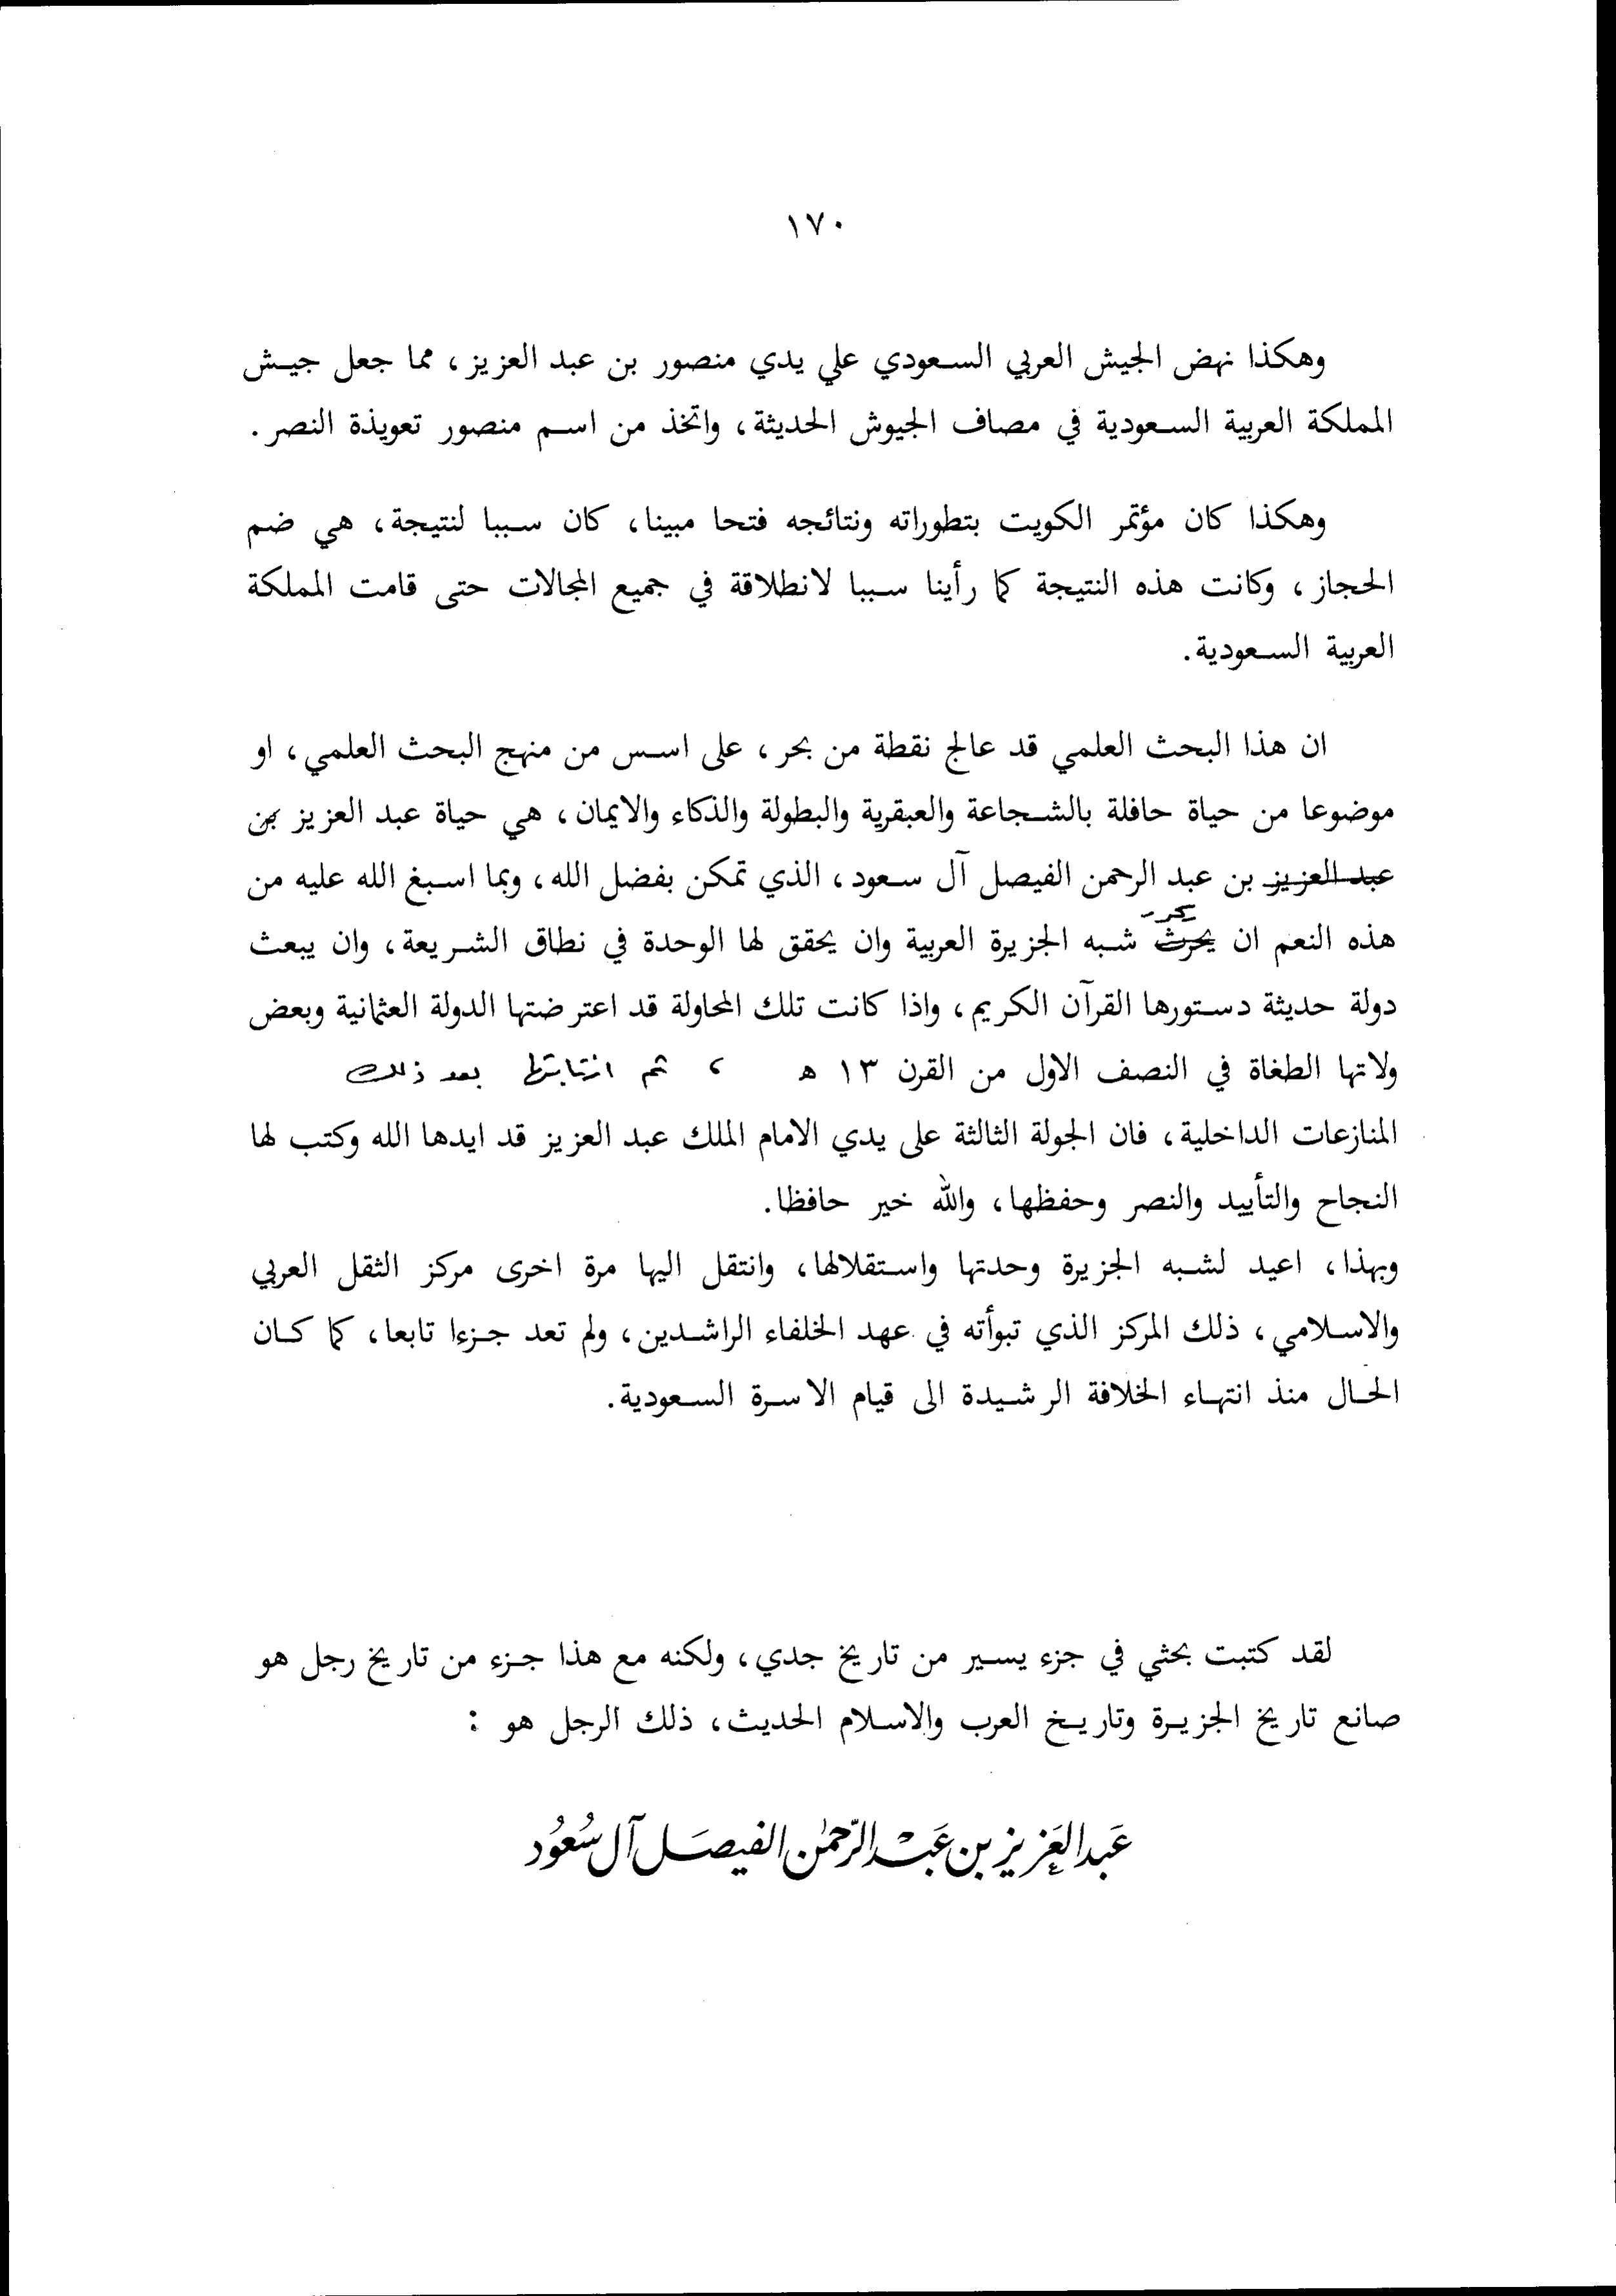 ١٧٠
وهكذا نهض الجيش العربي السعودي علي يدي منصور بن عبد العزيز، مما جعل جيش
المملكة العربية السعودية في مصاف الجيوش الحديثة، واتخذ من اسم منصور تعويذة النصر.
وهكذا كان مؤتمر الكويت بتطوراته ونتائجه فتحا مبينا، كان سببا لنتيجة، هي ضم
الحجاز، وكانت هذه النتيجة كما رأينا سببا لانطلاقة في جميع المجالات حتى قامت المملكة
العربية السعودية.
ان هذا البحث العلمي قد عالج نقطة من بحر، على اسس من منهج البحث العلمي، او
موضوعا من حياة حافلة بالشجاعة والعبقرية والبطولة والذكاء والايمان، هي حياة عبد العزيز بن
عبد العزيز بن عبد الرحمن الفيصل آل سعود، الذي تمكن بفضل الله، وبما اسبغ الله عليه من
هذه النعم ان يحرث شبه الجزيرة العربية وان يحقق لها الوحدة في نطاق الشريعة، وان يبعث
دولة حديثة دستورها القرآن الكريم، واذا كانت تلك المحاولة قد اعترضتها الدولة العثمانية وبعض
ولاتها الطغاة في النصف الاول من القرن ١٣ هـ ، ثم انتابتها بعد ذلك
المنازعات الداخلية، فان الجولة الثالثة على يدي الامام الملك عبد العزيز قد ايدها الله وكتب لها
النجاح والتأييد والنصر وحفظها، والله خير حافظا.
وبهذا، اعيد لشبه الجزيرة وحدتها واستقلالها، وانتقل اليها مرة اخرى مركز الثقل العربي
والاسلامي، ذلك المركز الذي تبوأته في عهد الخلفاء الراشدين، ولم تعد جزءا تابعا، كما كان
الحال منذ انتهاء الخلافة الرشيدة الى قيام الاسرة السعودية.
لقد كتبت بحثي في جزء يسير من تاريخ جدي، ولكنه مع هذا جزء من تاريخ رجل هو
صانع تاريخ الجزيرة وتاريخ العرب والاسلام الحديث، ذلك الرجل هو :
عَبد العَزيز بن عَبْد الرّحمٰن الفيصَل آل سُعُود